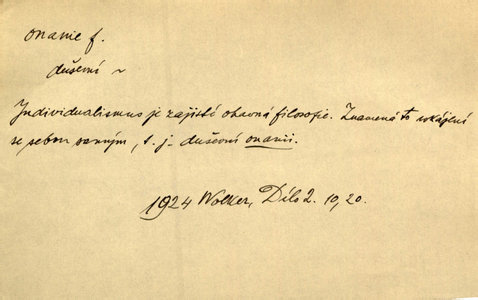 onanie f.
duševní ~
Individualismus je zajisté obecná filosofie. Znamená to
se sebou samým, t. j. duševní onanii.
1924 Wolker, Dílo 2. 10, 20.